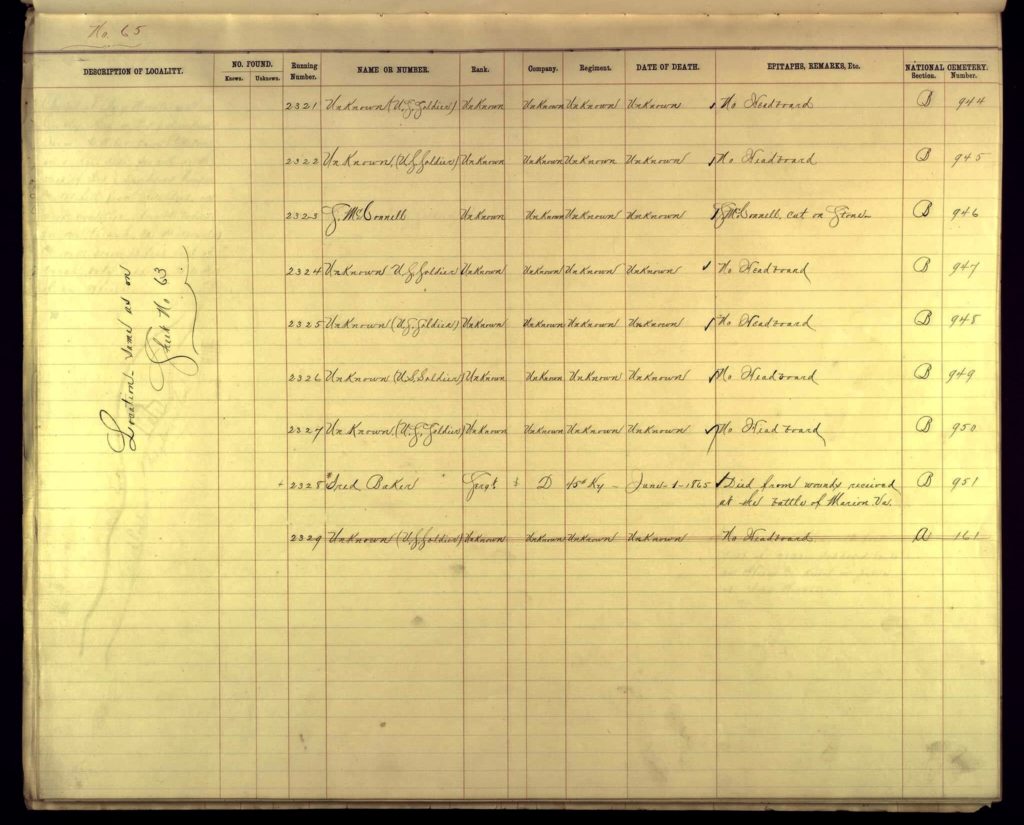 No. 65
DESCRIPTION OF LOCALITY. NO. FOUND. Known. Unknown. Running Number. NAME OR NUMBER. Rank. Company. Regiment. DATE OF DEATH. EPITAPHS, REMARKS, Etc. NATIONAL CEMETERY. Section. Number.
Location same as on
Sheet No 63
2321 UnKnown (U.S. Soldier) UnKnown UnKnown UnKnown UnKnown No Headboard B 944
2322 UnKnown (U S Soldier) UnKnown UnKnown UnKnown UnKnown No Headboard B 945
2323 S. McConnell UnKnown UnKnown UnKnown UnKnown S McConnell, cut on Stone B 946
2324 UnKnown U S Soldier UnKnown UnKnown UnKnown UnKnown No Headboard B 947
2325 UnKnown (U.S. Soldier) UnKnown UnKnown UnKnown UnKnown No Headboard B 948
2326 UnKnown (U.S. Soldier) UnKnown UnKnown UnKnown UnKnown No Headboard B 949
2327 UnKnown (U.S. Soldier) UnKnown UnKnown UnKnown UnKnown No Headboard B 950
2328 Fred Baker Sergt D 45th Ky June 1 1865 Died from wounds received
at the battle of Marion Va. B 951
2329 UnKnown (U S Soldier) UnKnown UnKnown UnKnown UnKnown No Headboard A 161